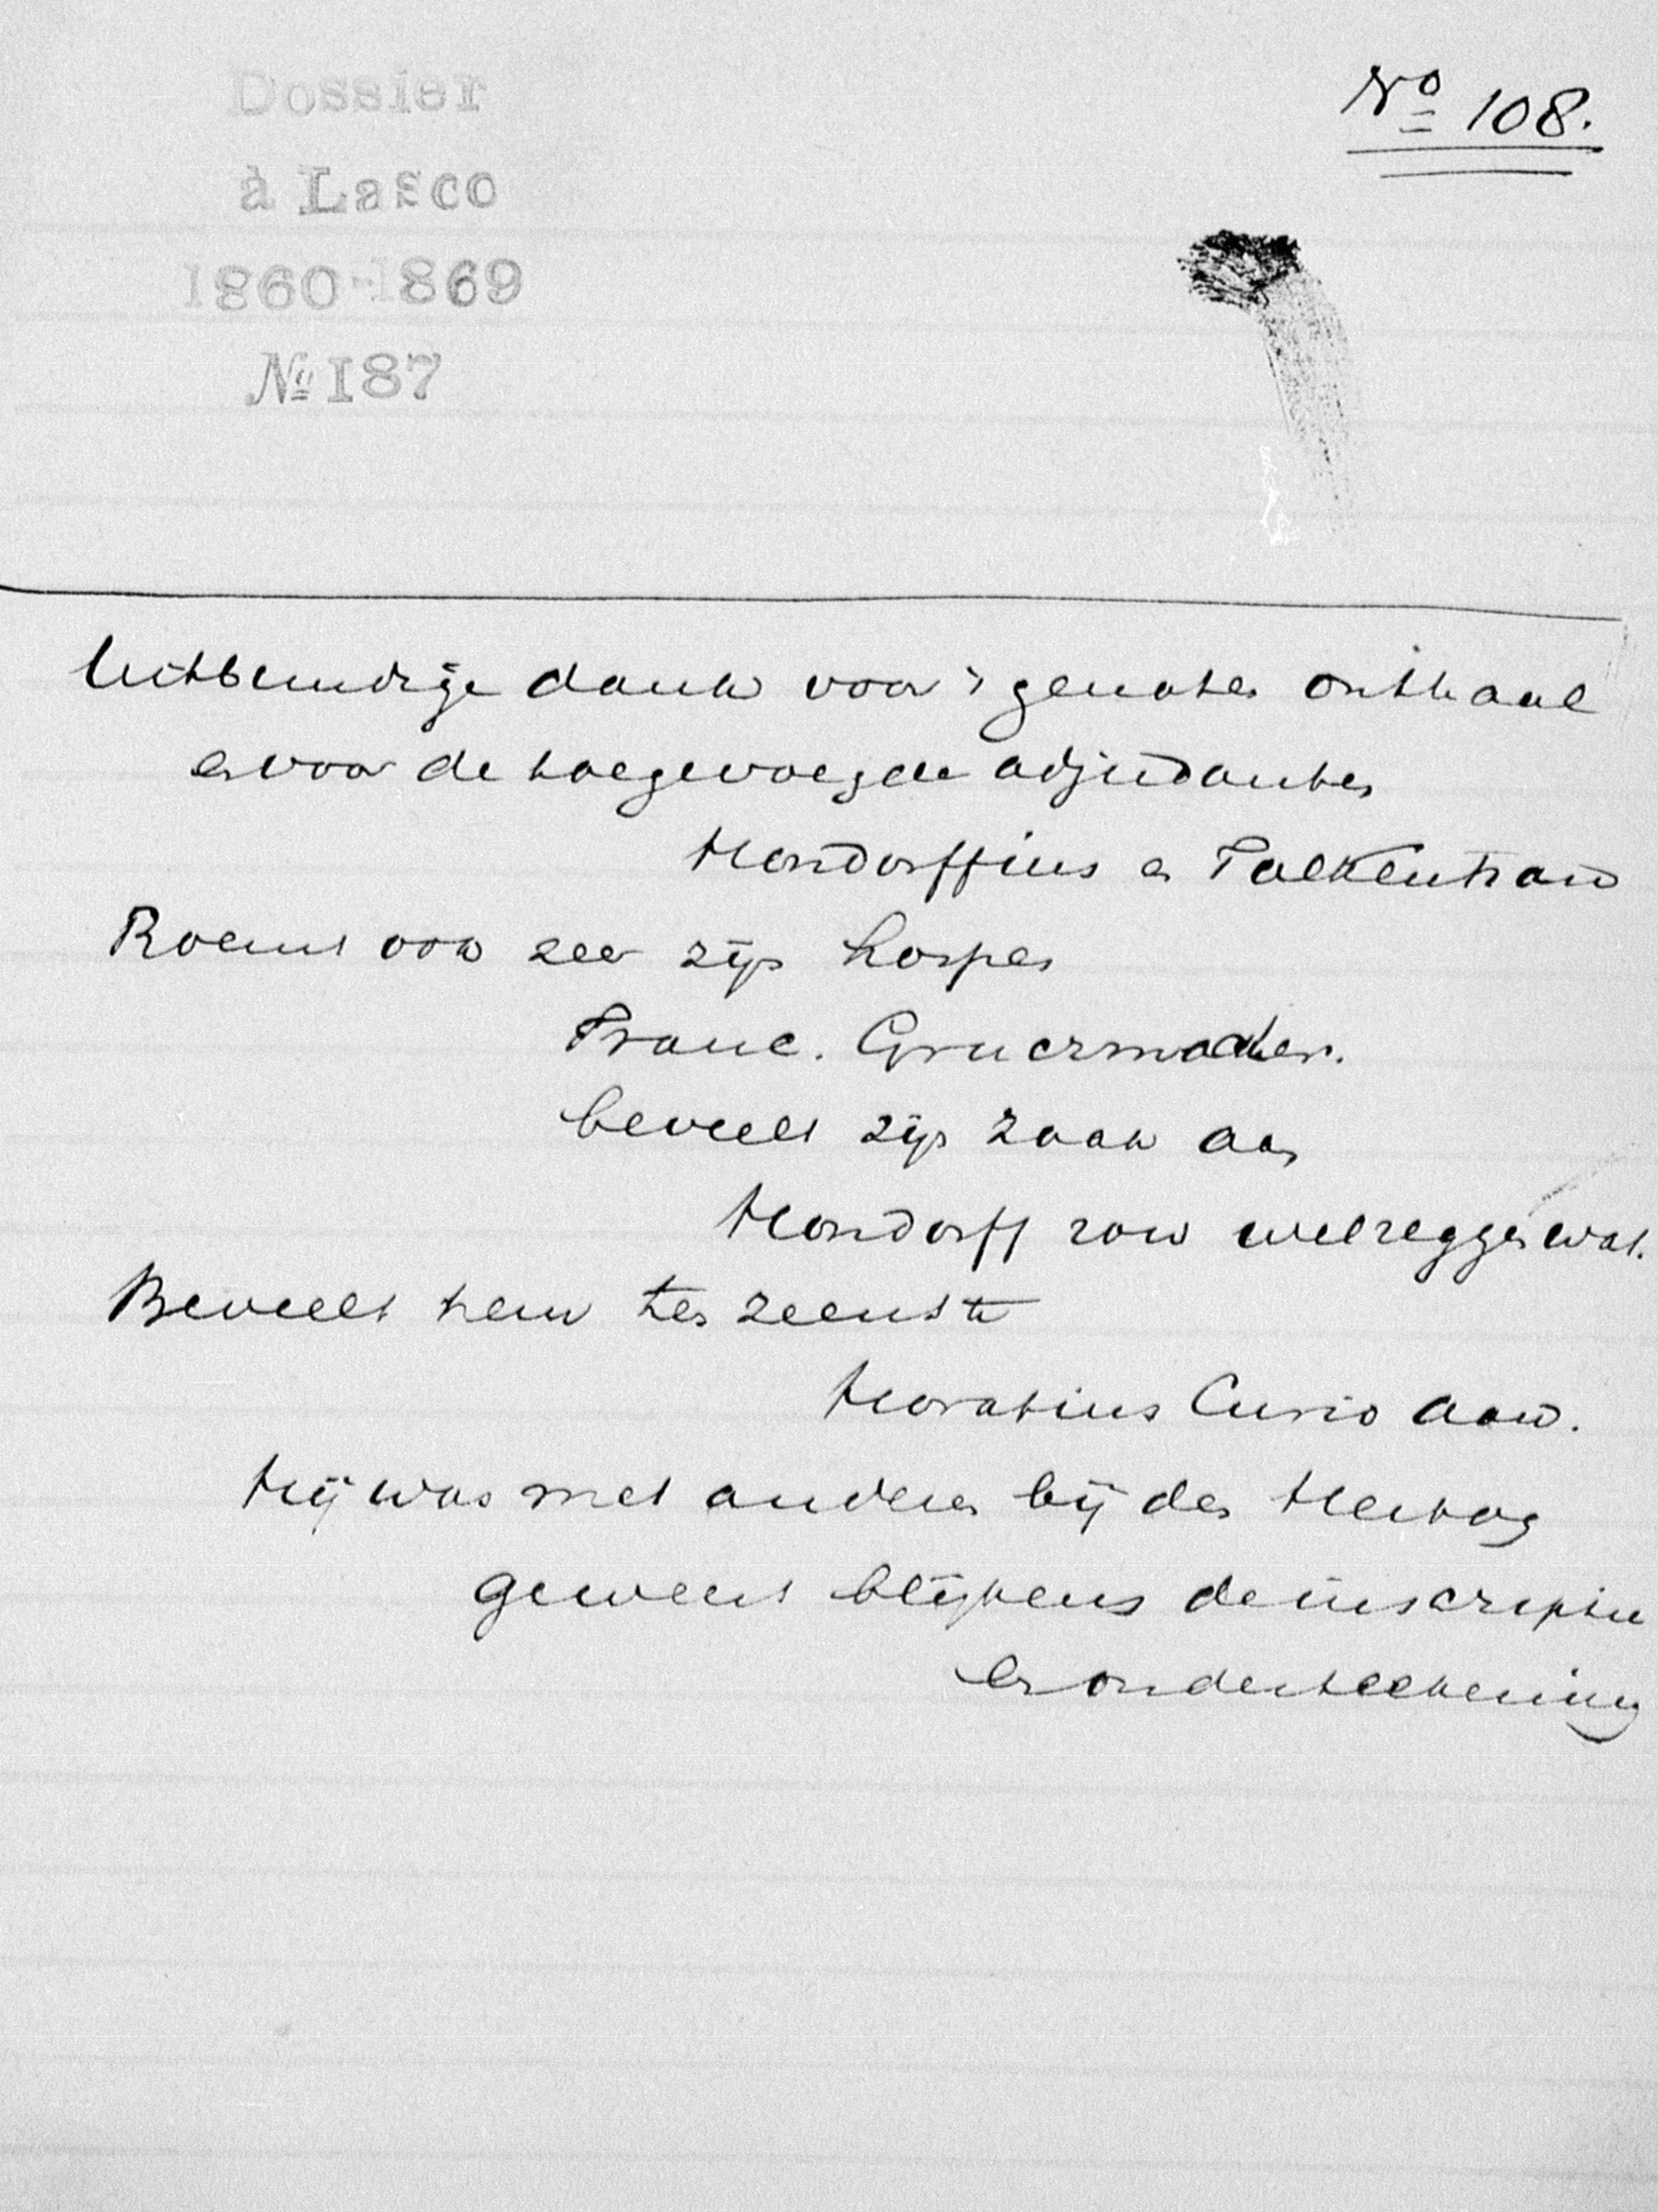 Dossier
à Lasco
1860-1869
№ 187
No 108.
Uitbundige dank voor 't genoten onthaal
en voor de toegevoegde adjudanten
Hondorffius en Falkenhan
Roemt ook zeer zijn hospes
Franc. Gruermacher.
beveelt zijn zaak aan
Hondorff zou wel zeggen wat.
Beveelt hem ten zeerste
Horatius Curio aan.
Hij was met anderen bij den Hertog
geweest blijkens de inscriptie
en onderteekening